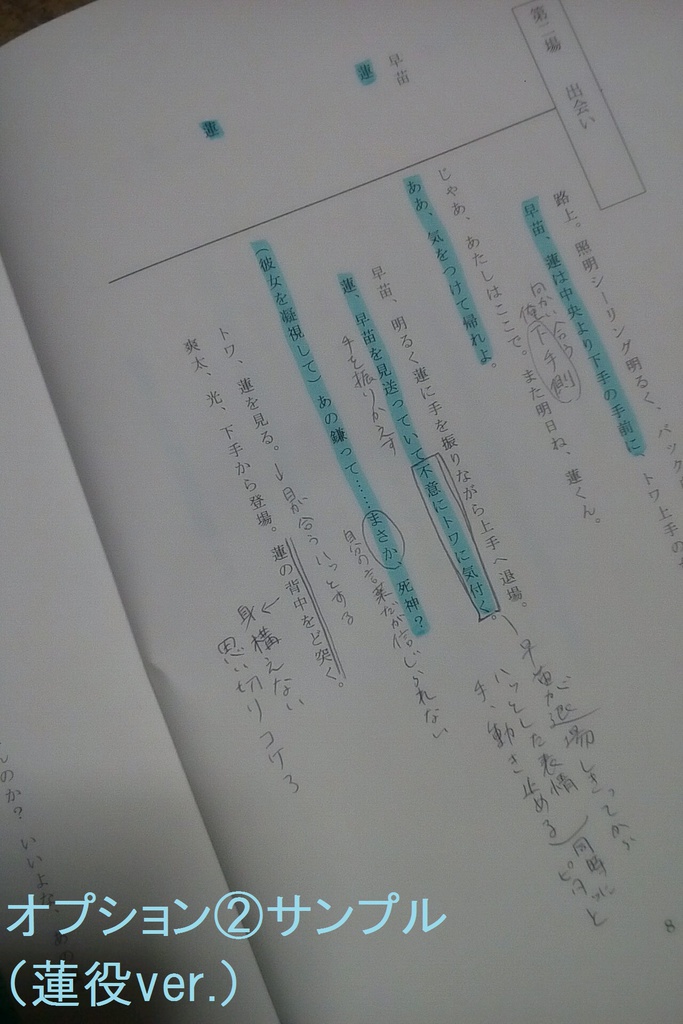 第二場　出会い
路上。照明シーリング明るく、バック
トワ上手の
早苗、蓮は中央より下手の手前に、
向かい合う
俺下手側
早苗
じゃあ、あたしはここで。また明日ね、蓮くん。
蓮
ああ、気をつけて帰れよ。
早苗、明るく蓮に手を振りながら上手へ退場。
早苗が退場しきってから
ハッとした表情
手、動き止める
同時にピタと
蓮、早苗を見送っていて不意にトワに気付く。
手を振りかえす
蓮
（彼女を凝視して）あの鎌って……まさか、死神？
自分の言葉だが信じられない
トワ、蓮を見る。→目が合う ハッとする
爽太、光、下手から登場。蓮の背中をど突く。
←身構えない
思い切りコケる
んのか？　いいよな、
8
オプション②サンプル
（蓮役ver.）